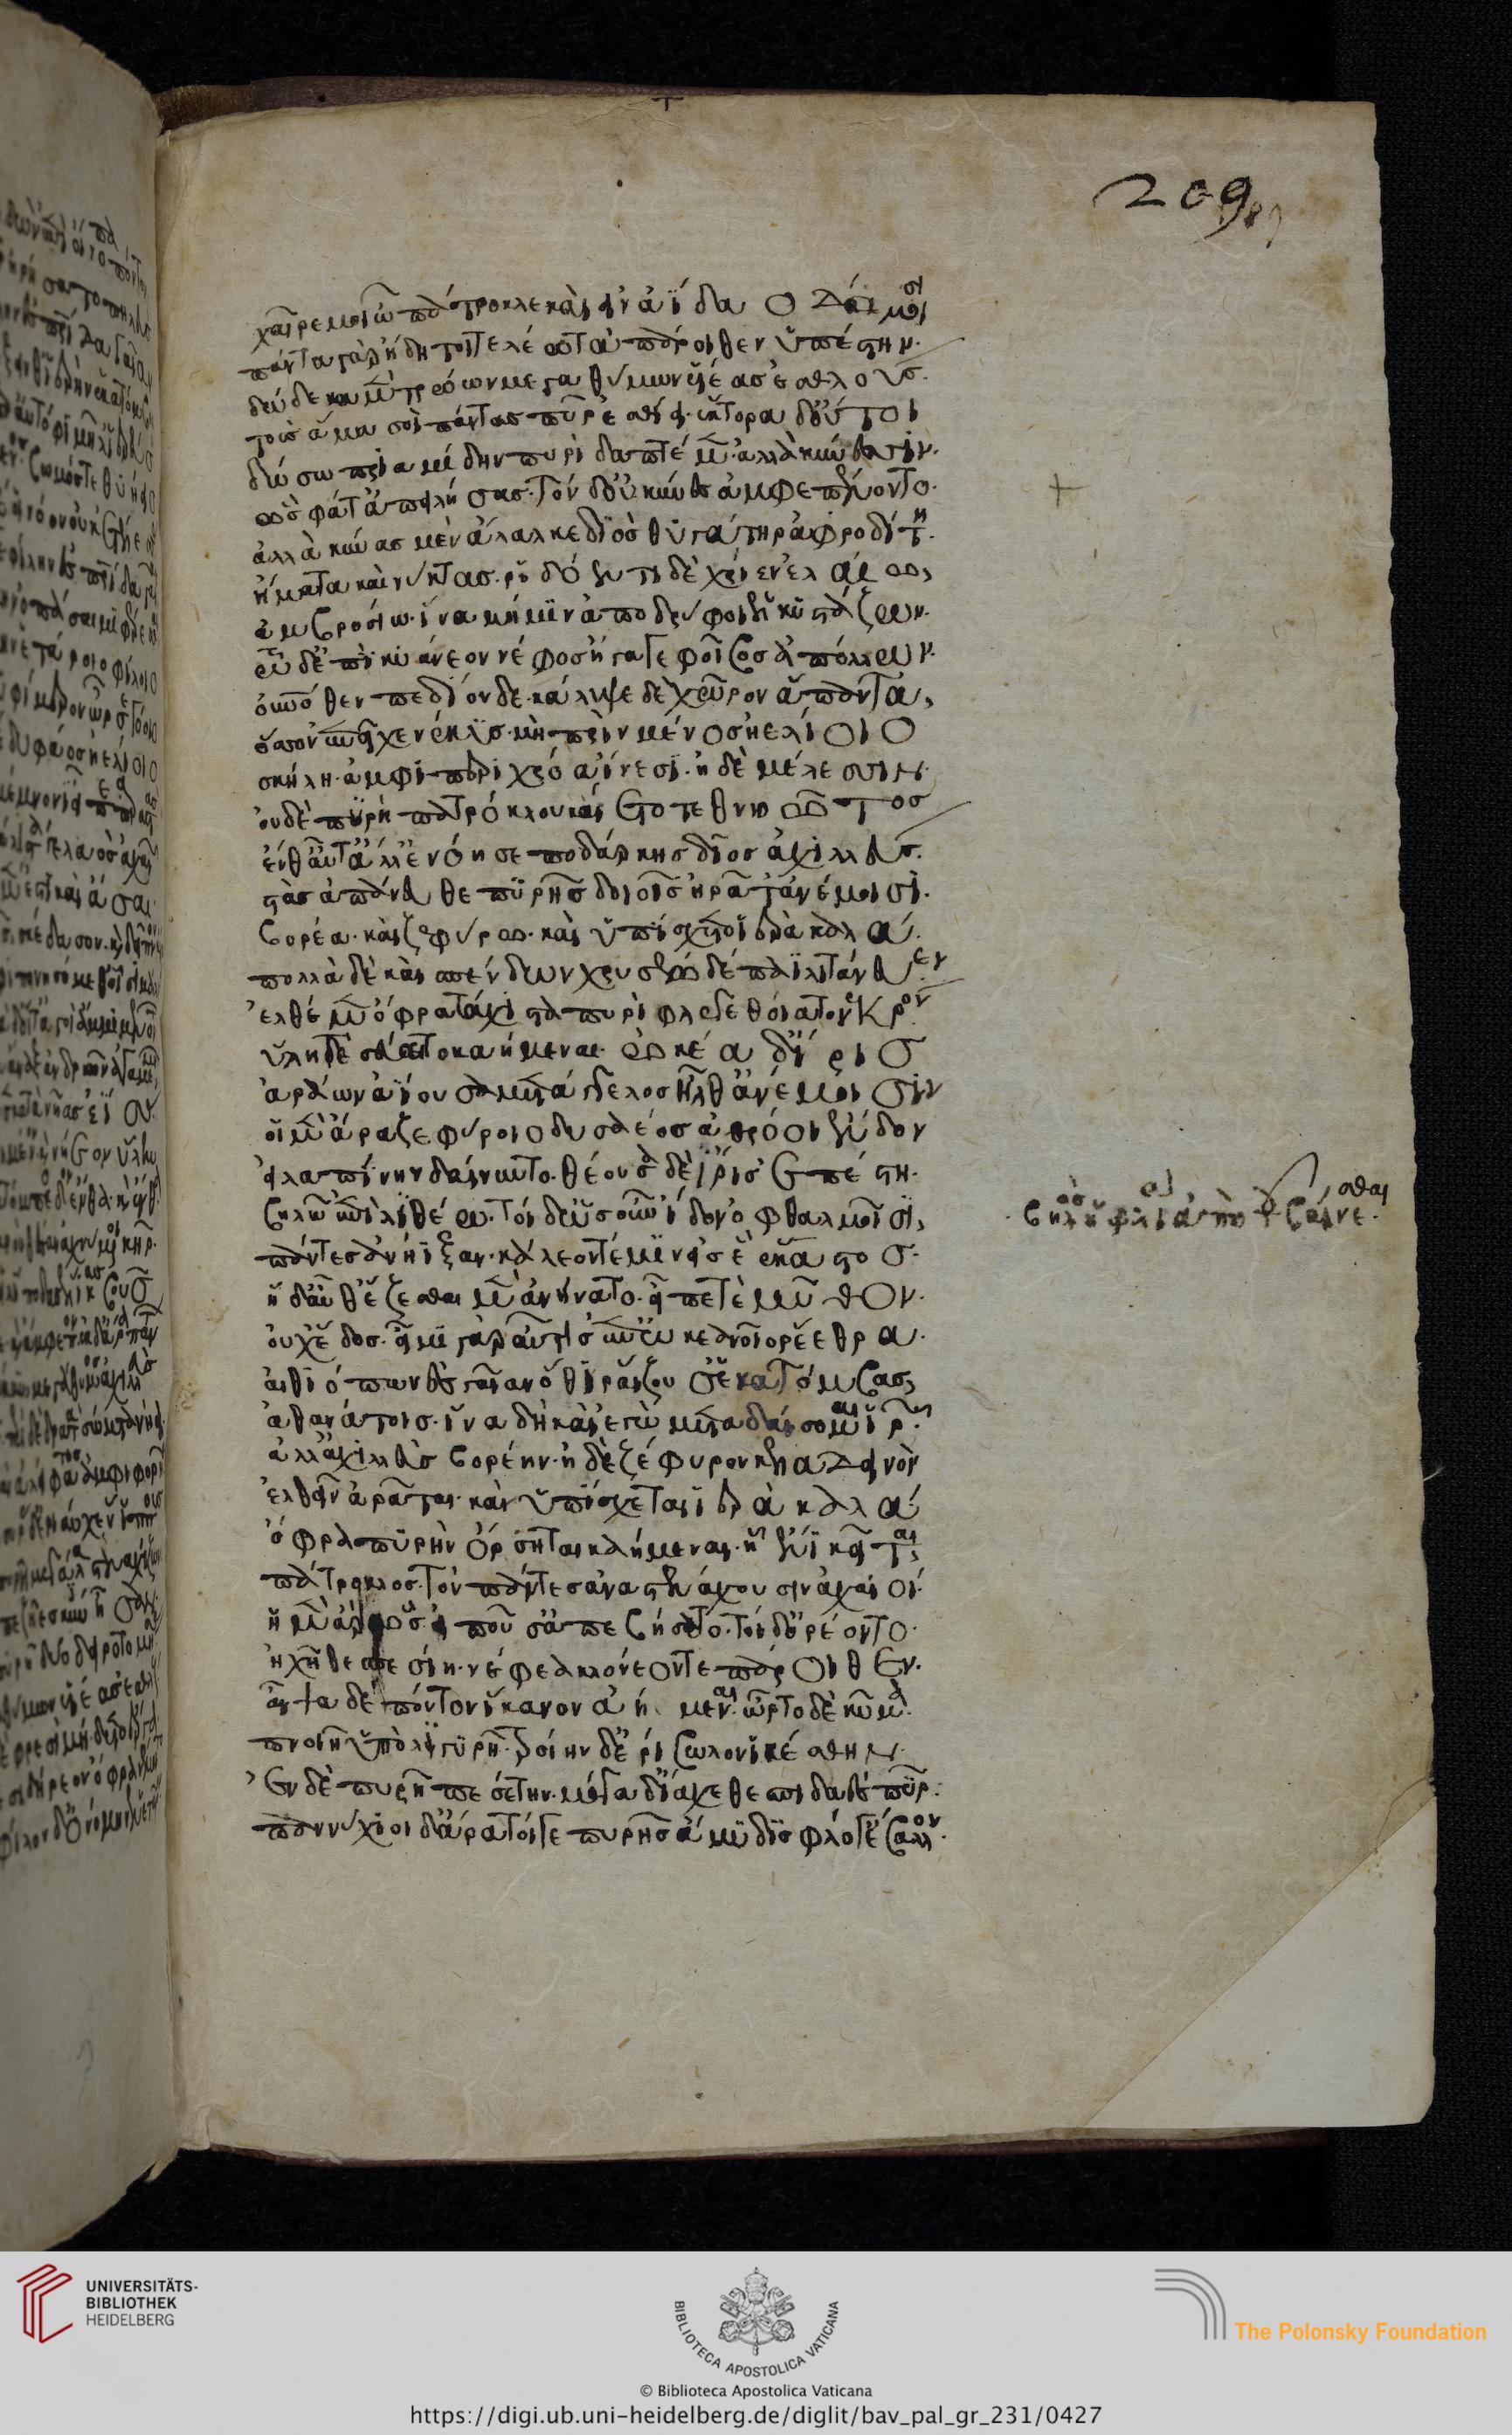 χαῖρέ μοι ὦ πάτροκλε καὶ εἰν ἀΐδαο δόμοισι
πάντα γὰρ ἤδη τοι τελέω τὰ πάροιθεν ὑπέστην.
δώδεκα μὲν τρώων μεγαθύμων υἱέας ἐσθλούς.
τοὺς ἅμα σοὶ πάντας πῦρ ἐσθίει. ἕκτορα δ' οὔτοι
δώσω πριαμίδην πυρὶ δαπτέμεν. ἀλλὰ κύνεσσιν.
ὣς φάτ' ἀπειλήσας. τὸν δ' οὐ κύνες ἀμφεπένοντο.
ἀλλὰ κύνας μὲν ἄλαλκε διὸς θυγάτηρ ἀφροδίτη.
ἤματα καὶ νύκτας. ῥοδόεντι δὲ χρῖεν ἐλαίω,
ἀμβροσίω. ἵνα μή μιν ἀποδρύφοι ἑλκυστάζων.
τῶ δ' ἐπὶ κυάνεον νέφος ἤγαγε φοῖβος ἀπόλλων.
οὐρανόθεν πεδίον δε. κάλυψε δὲ χῶρον ἅπαντα,
ὅσσον ἐπεῖχε νέκυς. μὴ πρὶν μένος ἠελίοιο
σκήλη ἀμφὶ περὶ χρόα ἴνεσι. ἠδὲ μέλεσσιν.
οὐδὲ πυρὴ πατρόκλου καίετο τεθνηῶτος
ἔνθ' αὖτ' ἄλλ' ἐνόησε ποδάρκης δῖος ἀχιλλεύς.
στὰς ἀπάνευθε πυρῆς δοιοῖς ἠρᾶτ' ἀνέμοισι.
βορέα. καὶ ζεφύρω. καὶ ὑπίσχετο ἱερὰ καλά.
πολλὰ δὲ καὶ σπένδων χρυσέω δέπαϊ λιτάνευεν.
ἐλθέμεν ὄφρα τάχιστα πυρὶ φλεγεθοίατο νεκροὶ
ὕλη τε σεύαιτο καήμεναι. ὠκέα δ' ἶρις
ἀράων ἀΐουσα μετάγγελος ἦλθ' ἀνέμοισιν
οἱ μὲν ἄρα ζεφύροιο δυσαέος ἀθρόοι ἔνδον
εἰλαπίνην δαίνυντο. θέουσα δὲ ἶρις ἐπέστη.
βηλῶ ἐπὶ λιθέω. τοὶ δ' ὡς ἴδον ὀφθαλμοῖσι,
πάντες ἀνήϊξαν. κάλεόν τέ μιν εἰς ἓ ἕκαστος.
ἡ δ' αὖθ' ἕζεσθαι μὲν ἀνήνατο. εἶπε τε μῦθον.
οὐχ ἕδος. εἶμι γὰρ αὖτις ἐπ' ὠκεανοῖο ῥέεθρα.
αἰθιόπων ἐς γαῖαν ὅθι ῥέζουσ' ἑκατόμβας,
ἀθανάτοις. ἵνα δὴ καὶ ἐγὼ μεταδαίσομαι ἱρῶν
ἀλλ' ἀχιλεὺς βορέην. ἠδὲ ζέφυρον κελαδεινὸν
ἐλθεῖν ἀρᾶται. καὶ ὑπίσχεται ἱερὰ καλά.
ὄφρα πυρὴν ὄρσητε καήμεναι. ἧ ἔνι κεῖται,
πάτροκλος. τὸν πάντες ἀναστενάχουσιν ἀχαιοί.
ἡ μὲν ἄρ' ὣς εἰποῦσ' ἀπεβήσετο. τοὶ δ' ὀρέοντο.
ἠχῆ θεσπεσίη. νέφεα κλονέοντε πάροιθεν.
αἶψα δὲ πόντον ἵκανον ἀήμεναι. ὦρτο δὲ κῦμα.
πνοιῆ ὕπο λιγυρῆ. τροίην δ' ἐρίβωλον ἱκέσθην.
ἐν δὲ πυρῆ πεσέτην. μέγα δ' ἴαχε θεσπιδαὲς πῦρ.
παννύχιοι δ' ἄρα τοί γε πυρῆς ἄμυδις φλόγ' ἔβαλλον.
209
UNIVERSITÄTS-
BIBLIOTHEK
HEIDELBERG
BIBLIOTECA APOSTOLICA VATICANA
The Polonsky Foundation
© Biblioteca Apostolica Vaticana
https://digi.ub.uni-heidelberg.de/diglit/bav_pal_gr_231/0427